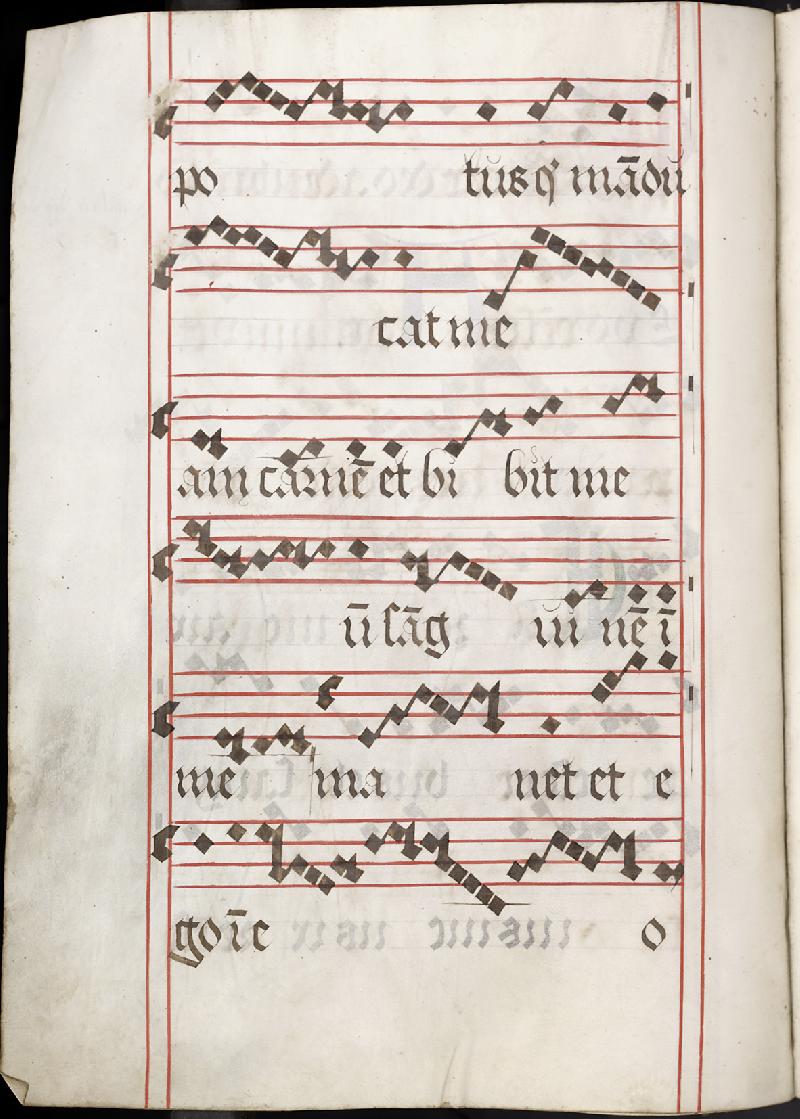 po tusq̓ mādu
cat me
am carnē et bi bit me
ū sāg uı nē ī
me ma net et e
go ī e o